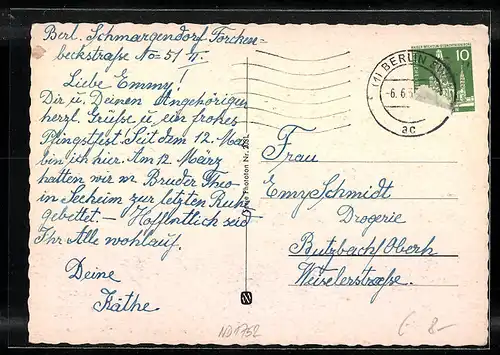 Berl. Schmargendorf Forcken-
beckstraße No 5/II.
Liebe Emmy!
Dir u. Deinen Angehörigen
herzl. Grüße u. ein frohes
Pfingstfest. Seit dem 12. Mai
bin ich hier. Am 12. März
hatten wir m. Bruder Theo
in Seeheim zur letzten Ruhe
gebettet – Hoffentlich seid
Ihr Alle wohlauf.
Deine
Käthe
(1) BERLIN
-6. 6. 5
ac
10
Frau
Emy Schmidt
Drogerie
Butzbach/Oberh
Weiselerstrasse.
ND1752